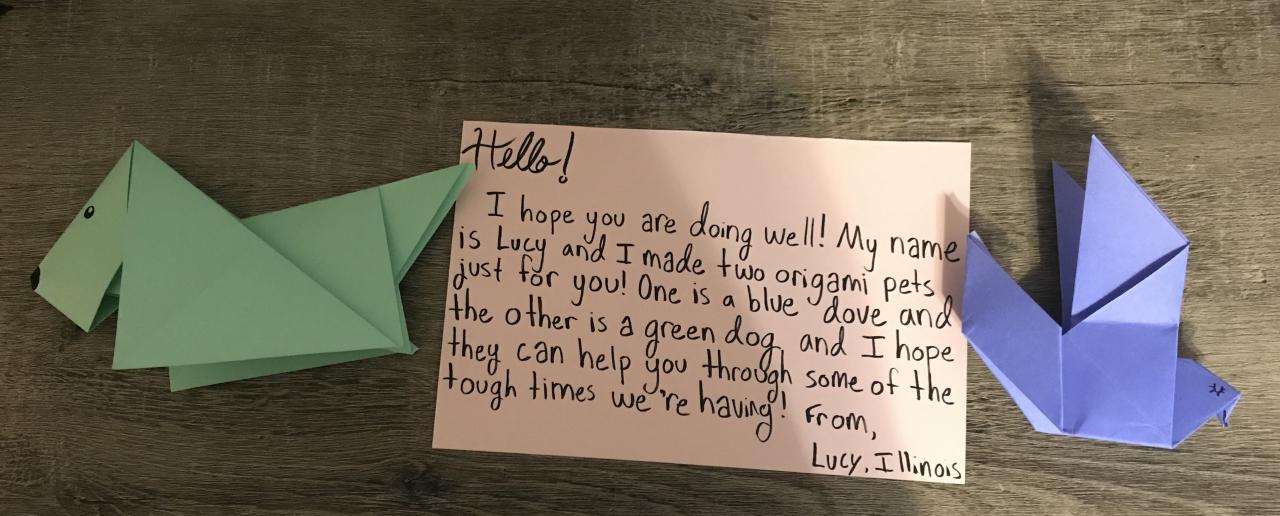 Hello!
I hope you are doing well! My name
is Lucy and I made two origami pets
just for you! One is a blue dove and
the other is a green dog, and I hope
they can help you through some of the
tough times we're having! From,
Lucy, Illinois